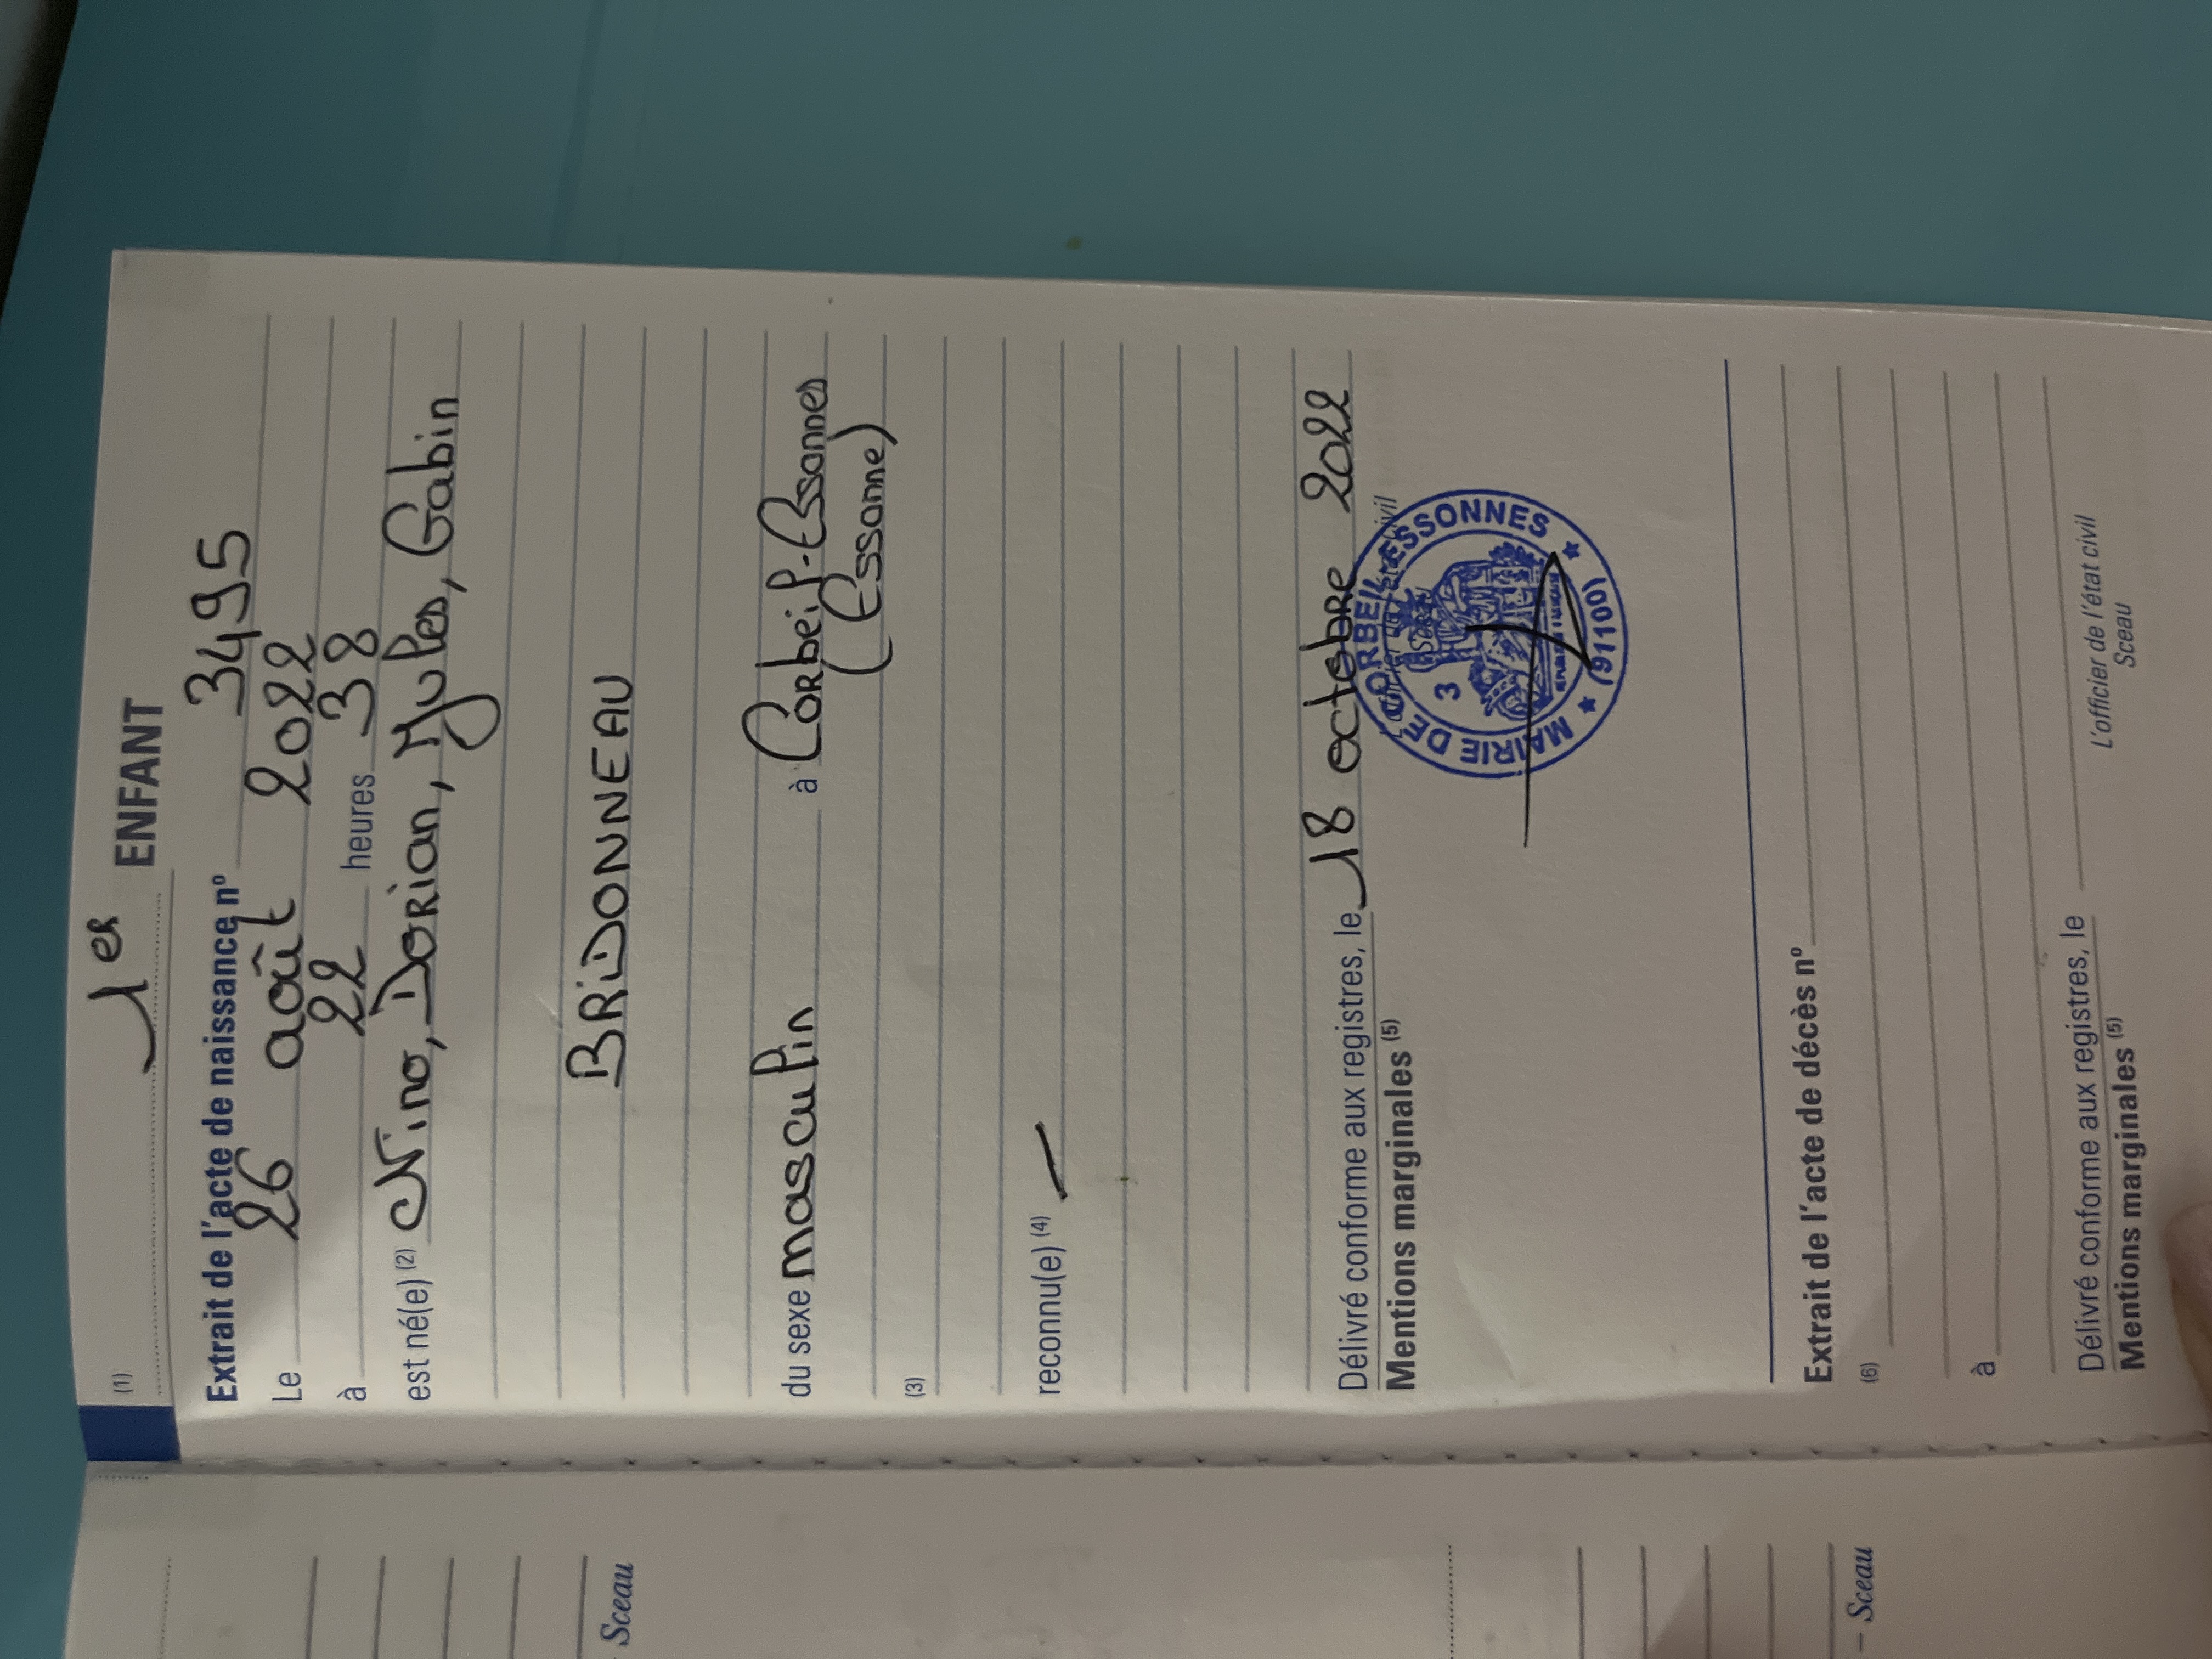 (1) 1er ENFANT
Extrait de l'acte de naissance n° 3495
Le 26 août 2022
à 22 heures 38
est né(e) (2) Nino, Dorian, Jules, Gabin
BRIDONNEAU
du sexe masculin à Corbeil-Essonnes
(Essonne)
(3)
reconnu(e) (4) —
Délivré conforme aux registres, le 18 octobre 2022
L'officier de l'état civil
Sceau
MAIRIE DE CORBEIL-ESSONNES
3
★ (91100) ★
Mentions marginales (5)
Extrait de l'acte de décès n°
(6)
à
Délivré conforme aux registres, le
L'officier de l'état civil
Sceau
Mentions marginales (5)
Sceau
– Sceau